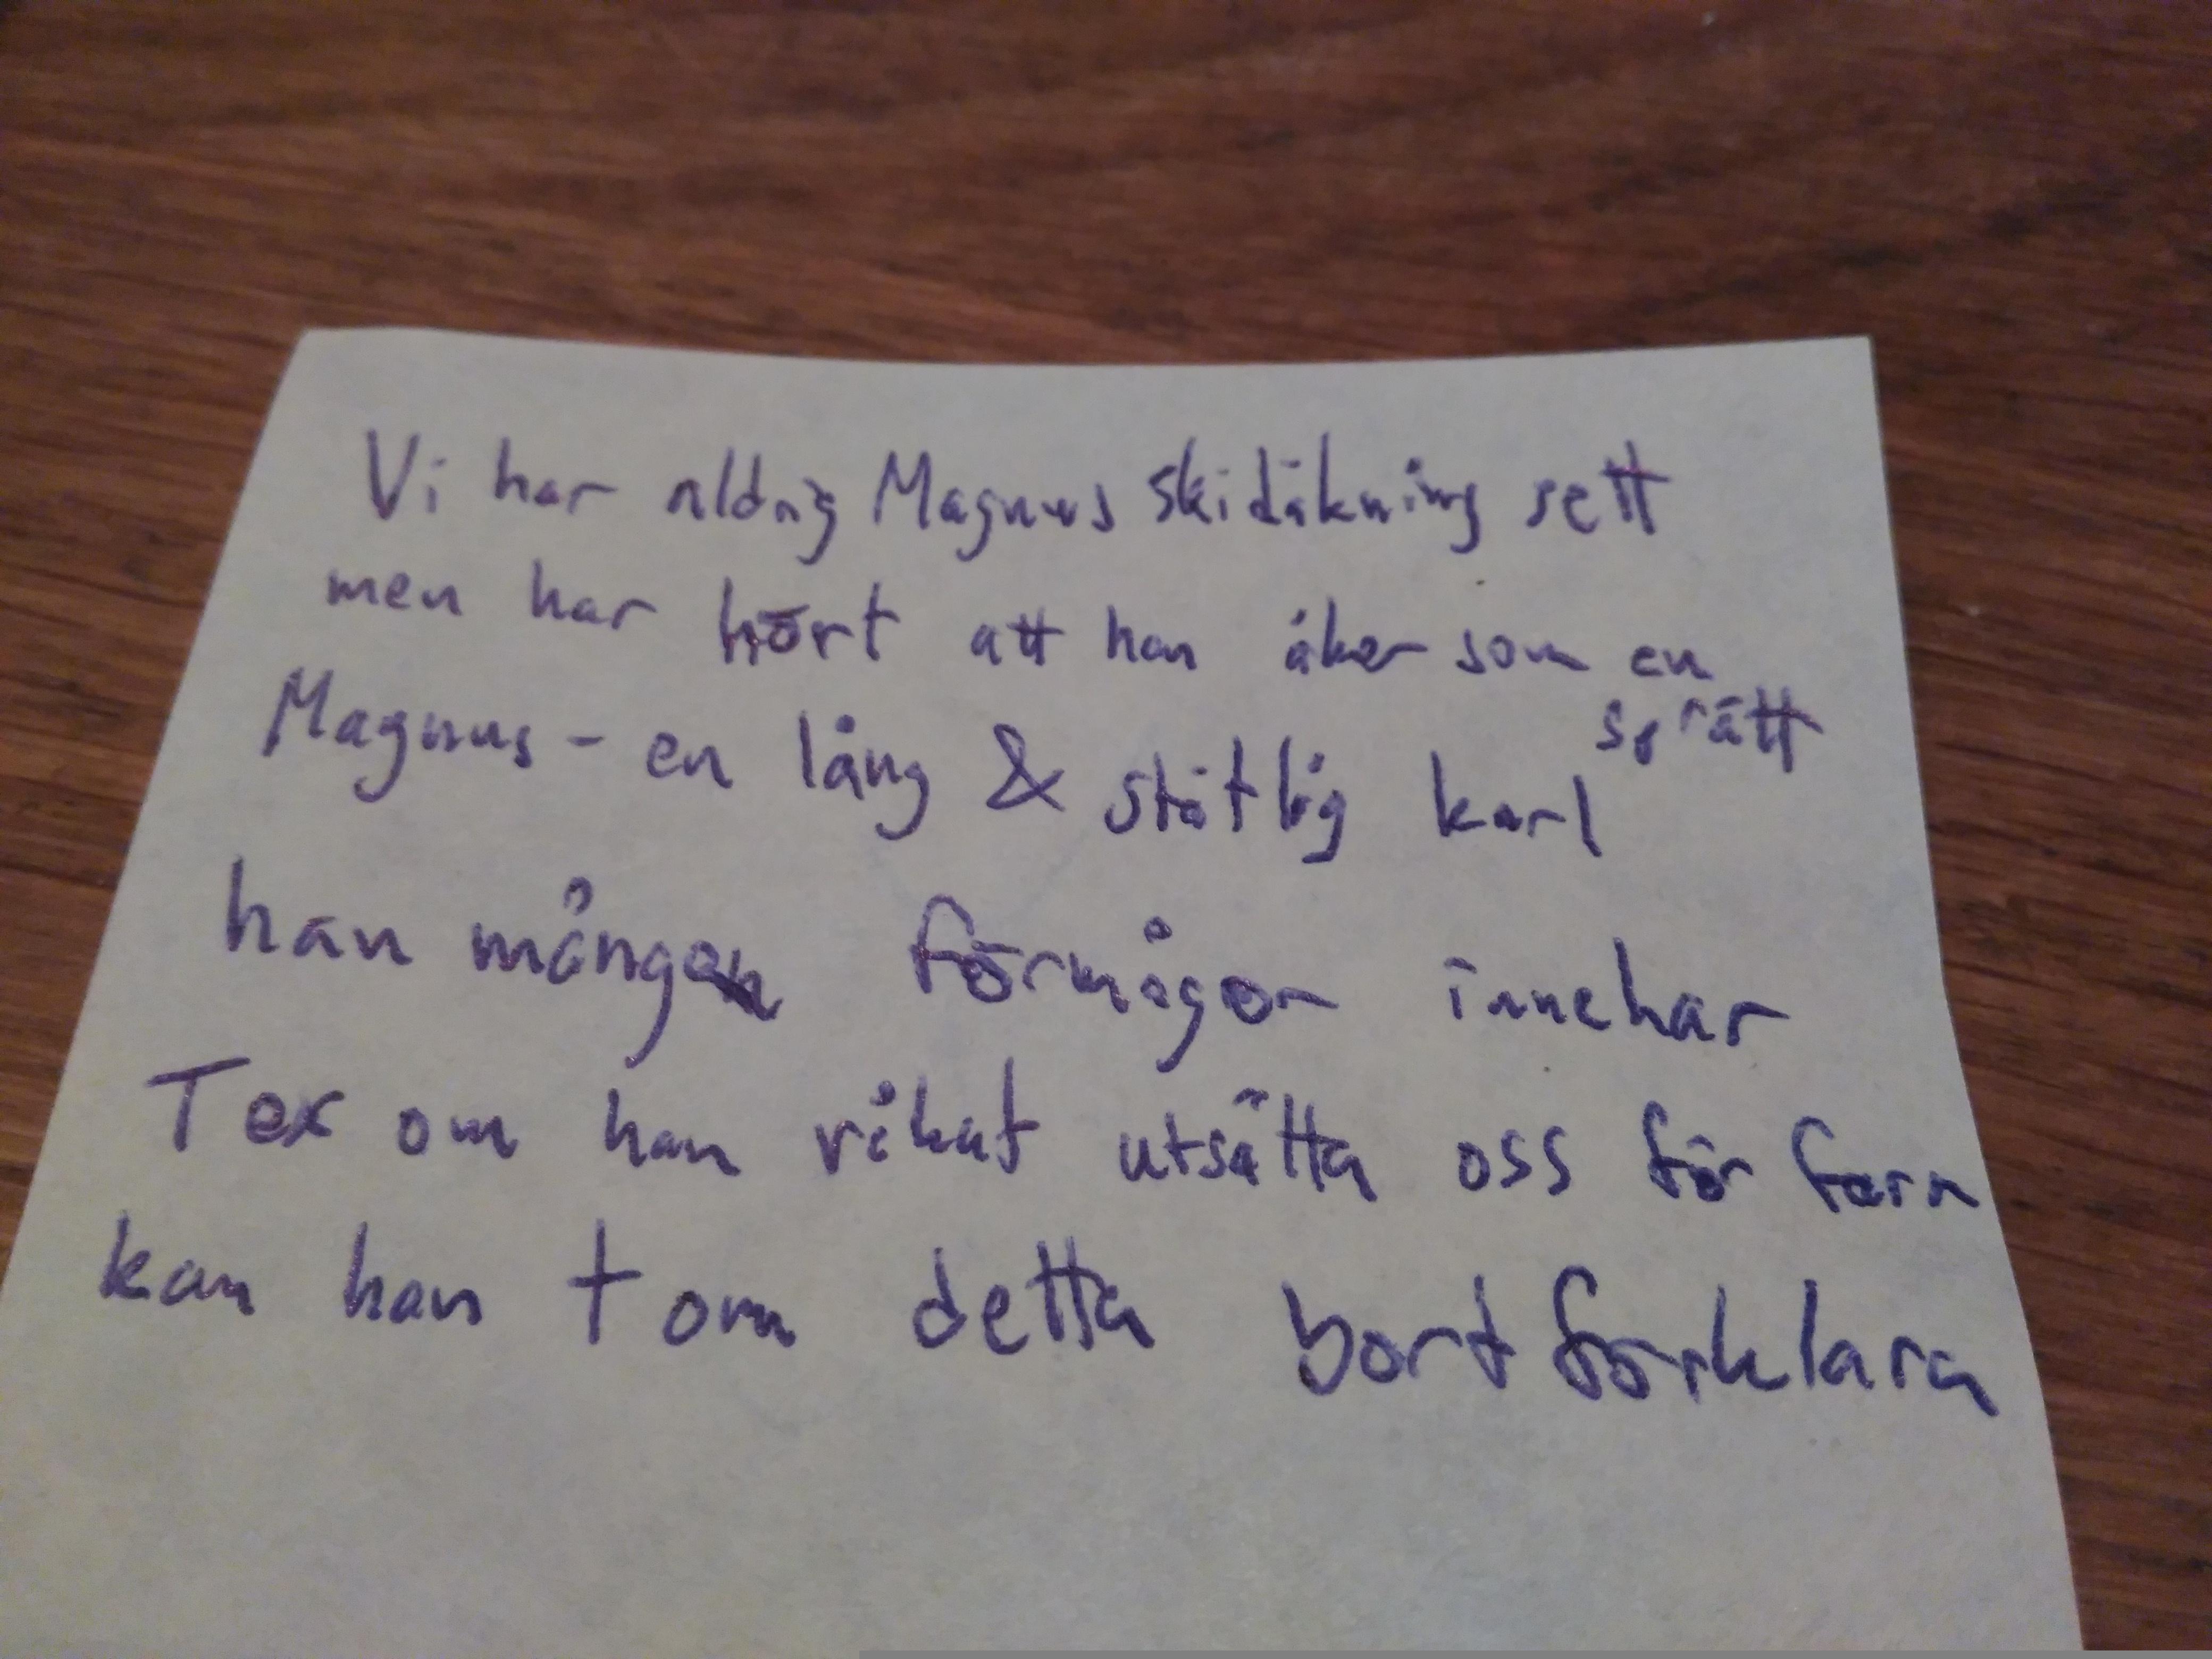 Vi har aldrig Magnus skidåkning sett
men har hört att han åker som en
sprätt
Magnus - en lång & ståtlig karl
han många förmågor innehar
Tex om han råkat utsätta oss för fara
kan han t om detta bortförklara